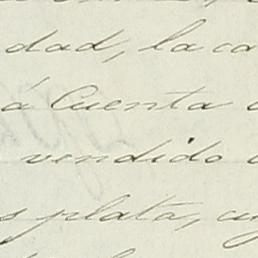 dad, la ca
á Cuenta
vendido
s plata, cuy